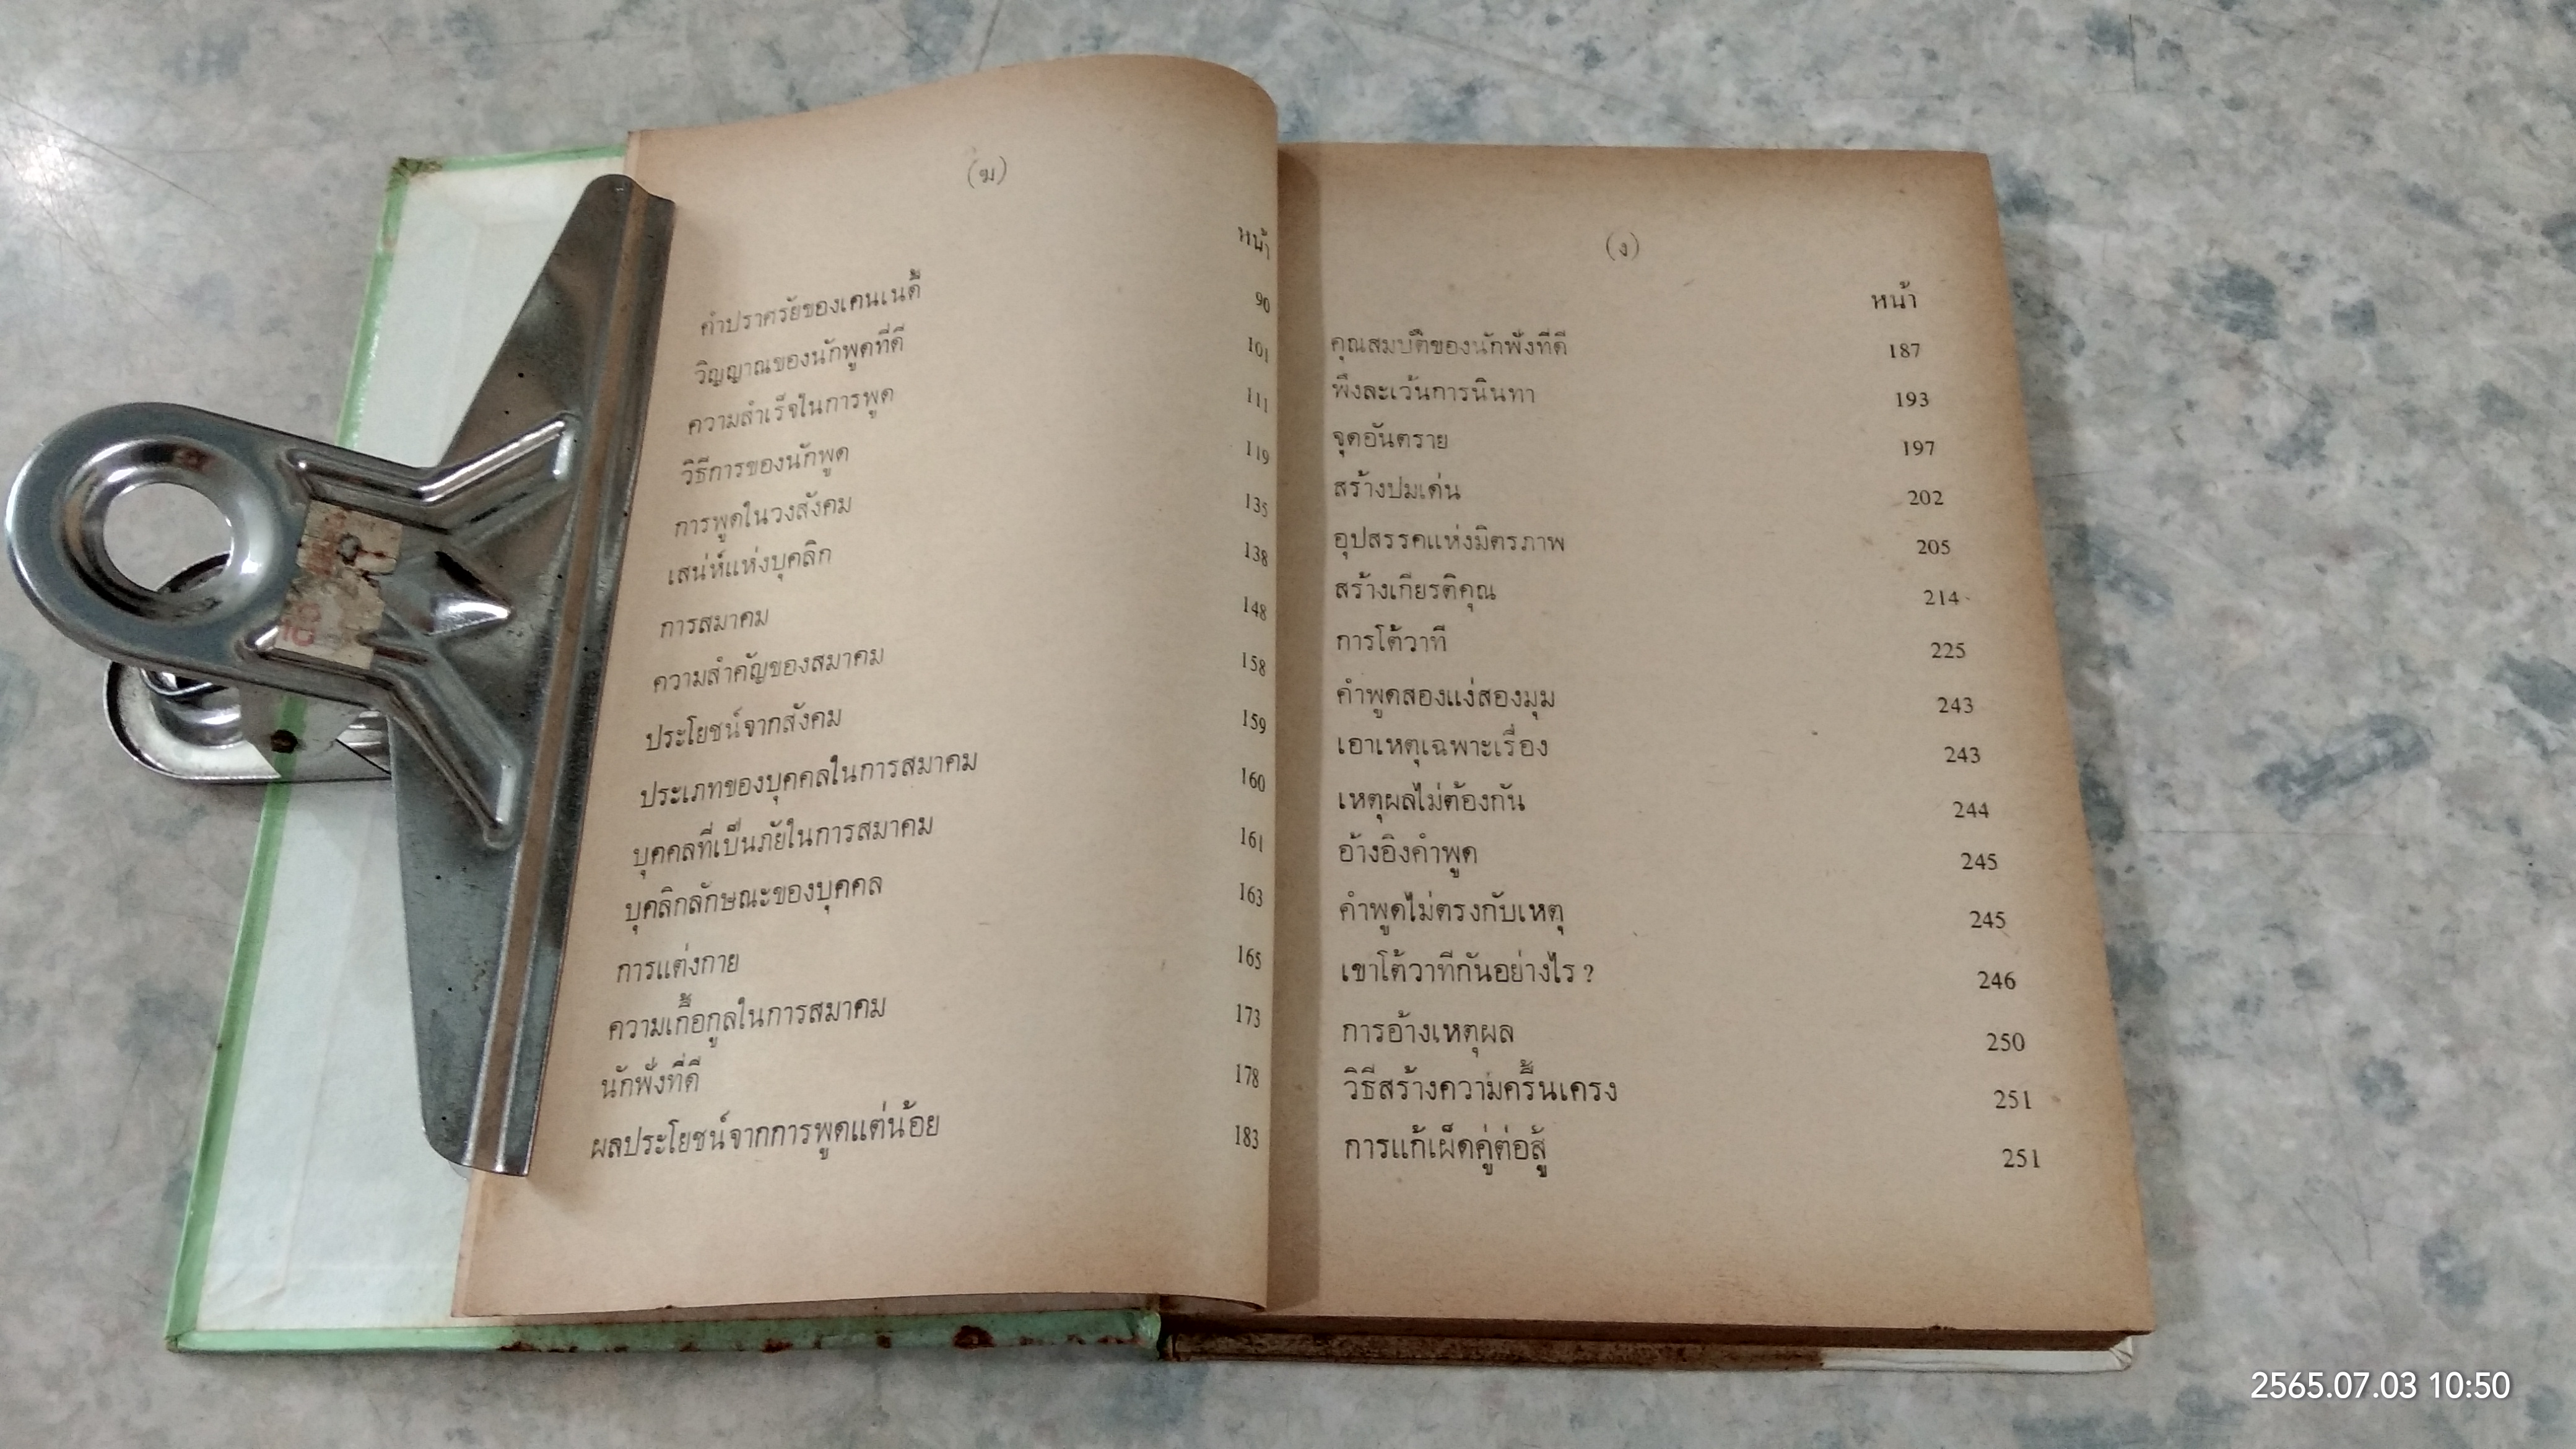 (ฆ)
หน้า
คำปราศรัยของเคนเนดี้ 90
วิญญาณของนักพูดที่ดี 101
ความสำเร็จในการพูด 111
วิธีการของนักพูด 119
การพูดในวงสังคม 135
เสน่ห์แห่งบุคลิก 138
การสมาคม 148
ความสำคัญของสมาคม 158
ประโยชน์จากสังคม 159
ประเภทของบุคคลในการสมาคม 160
บุคคลที่เป็นภัยในการสมาคม 161
บุคลิกลักษณะของบุคคล 163
การแต่งกาย 165
ความเกื้อกูลในการสมาคม 173
นักฟังที่ดี 178
ผลประโยชน์จากการพูดแต่น้อย 183
(ง)
หน้า
คุณสมบัติของนักฟังที่ดี 187
พึงละเว้นการนินทา 193
จุดอันตราย 197
สร้างปมเด่น 202
อุปสรรคแห่งมิตรภาพ 205
สร้างเกียรติคุณ 214
การโต้วาที 225
คำพูดสองแง่สองมุม 243
เอาเหตุเฉพาะเรื่อง 243
เหตุผลไม่ต้องกัน 244
อ้างอิงคำพูด 245
คำพูดไม่ตรงกับเหตุ 245
เขาโต้วาทีกันอย่างไร ? 246
การอ้างเหตุผล 250
วิธีสร้างความครื้นเครง 251
การแก้เผ็ดคู่ต่อสู้ 251
2565.07.03 10:50